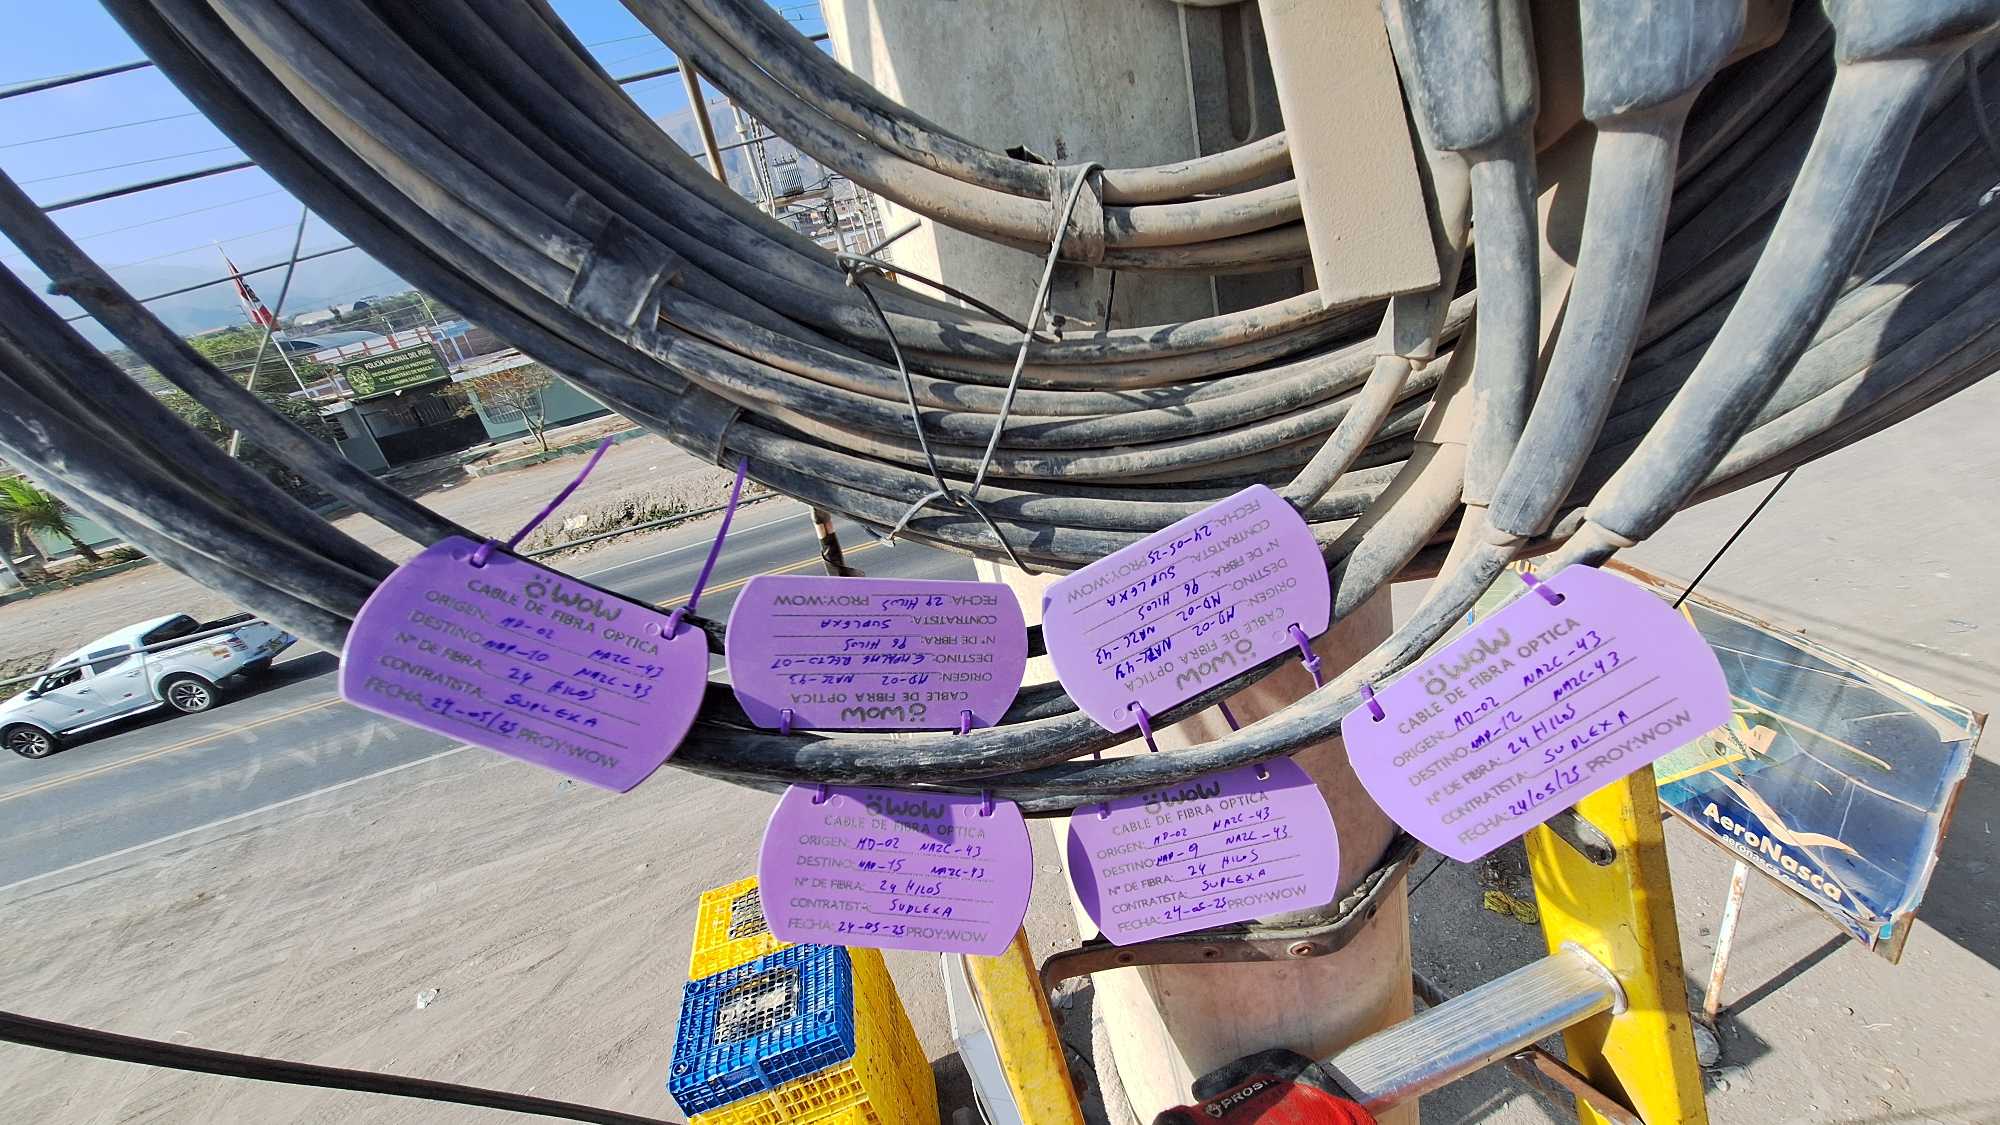 POLICIA NACIONAL DEL PERU
DESTACAMENTO DE PROTECCIÓN
DE CARRETERAS DE NASCA Y
PAMPA GALERAS
WOW
CABLE DE FIBRA OPTICA
ORIGEN: MD-02 NAZC-43
DESTINO: NAP-10 NAZC-43
N° DE FIBRA: 24 HILOS
CONTRATISTA: SUPLEXA
FECHA: 24-05/25 PROY:WOW
WOW
CABLE DE FIBRA OPTICA
ORIGEN: MD-02 NAZC-43
DESTINO: EMPALME RECTO-01
N° DE FIBRA: 96 HILOS
CONTRATISTA SUPLEXA
FECHA: 24 HILOS PROY:WOW
WOW
CABLE DE FIBRA OPTICA
ORIGEN: MD-02 NAZC-44
DESTINO: MD-02 NAZC-43
N° DE FIBRA: 96 HILOS
CONTRATISTA: SUPLEXA
FECHA: 24-05-25 PROY:WOW
WOW
CABLE DE FIBRA OPTICA
ORIGEN: MD-02 NAZC-43
DESTINO: NAP-12 NAZC-43
N° DE FIBRA: 24 HILOS
CONTRATISTA: SUPLEXA
FECHA: 24/05/25 PROY:WOW
WOW
CABLE DE FIBRA OPTICA
ORIGEN: MD-02 NAZC-43
DESTINO: NAP-15 NAZC-43
N° DE FIBRA: 24 HILOS
CONTRATISTA: SUPLEXA
FECHA: 24-05-25 PROY:WOW
WOW
CABLE DE FIBRA OPTICA
ORIGEN: MD-02 NAZC-43
DESTINO: NAP-9 NAZC-43
N° DE FIBRA: 24 HILOS
CONTRATISTA: SUPLEXA
FECHA: 24-05-25 PROY:WOW
AeroNasca